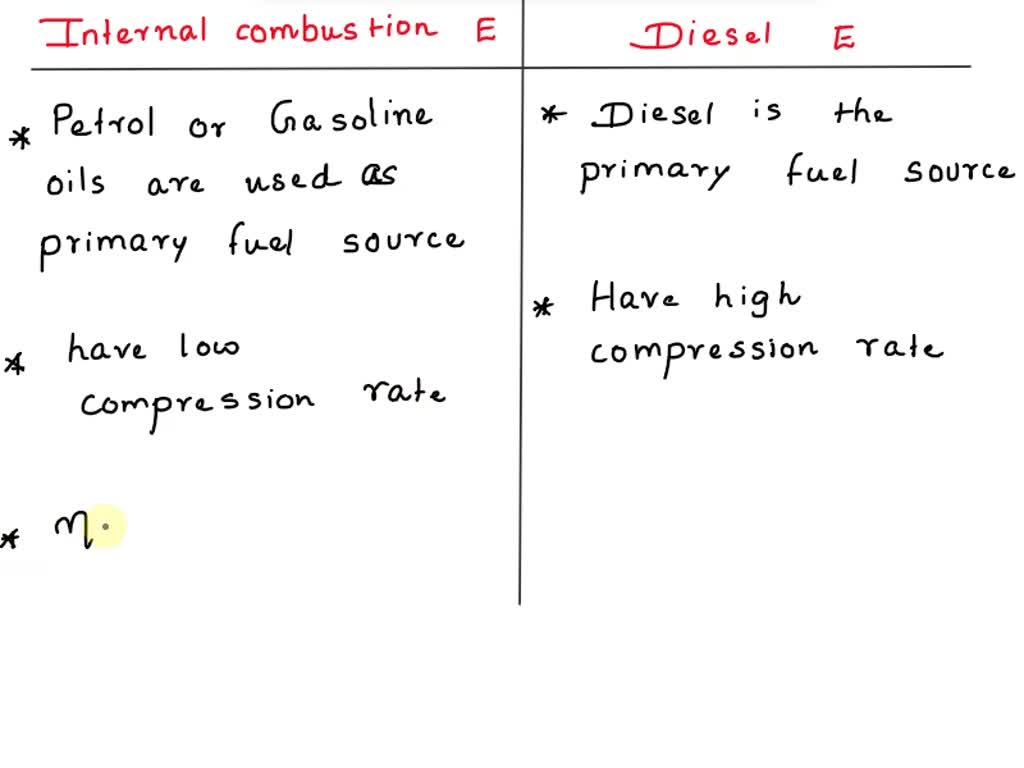 Internal combustion E
* Petrol or Gasoline
oils are used as
primary fuel source
* have low
compression rate
* η
Diesel E
* Diesel is the
primary fuel source
* Have high
compression rate